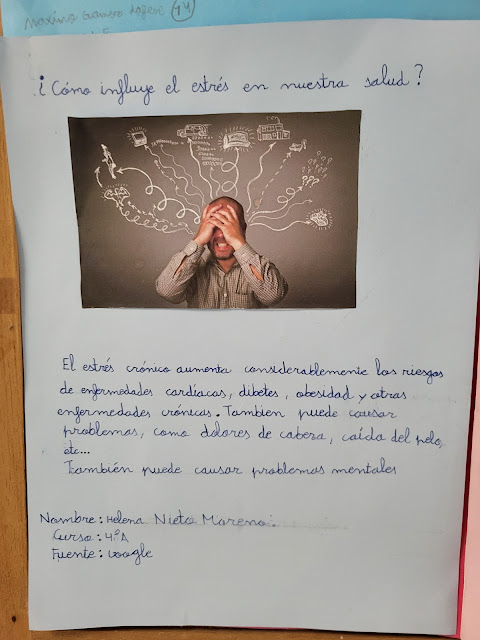 14
¿Cómo influye el estrés en nuestra salud?
El estrés crónico aumenta considerablemente los riesgos
de enfermedades cardíacas, dibetes, obesidad y otras
enfermedades crónicas. Tambien puede causar
problemas, como dolores de cabeza, caída del pelo,
etc...
También puede causar problemas mentales
Nombre: Helena Nieto Moreno.
Curso: 4.ºA
Fuente: Google